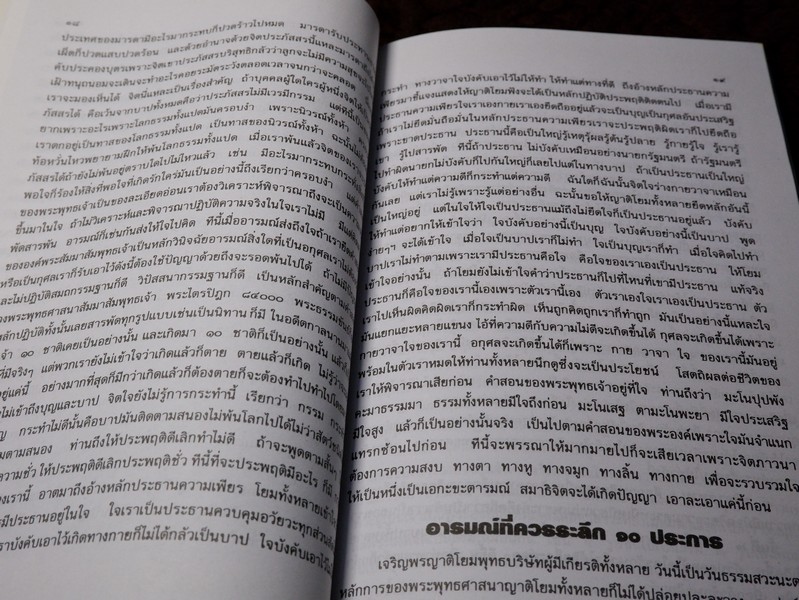 ๑๘
ประเทศของมารดามีอะไรมากระทบก็ปวดร้าวไปหมด มารดารับประทาน
เผ็ดก็ปวดแสบปวดร้อน และด้วยอำนาจด้วยจิตประภัสสรนี้แหละมารดา
คับประคองบุตรเพราะจิตเขาประภัสสรบริสุทธิ์กลัวว่าลูกจะไม่มีความสุข
เฝ้าทนุถนอมจะเดินจะทำอะไรคอยระมัดระวังตลอดเวลาจนกว่าจะคลอด
เราจะมองเห็นได้ จิตนี่แหละเป็นเรื่องสำคัญ ถ้าบุคคลผู้ใดใครผู้หนึ่ง
ภัสสรได้ คือเว้นจากบาปทั้งหมดคือว่าประภัสสรไม่มีเวรมีกรรม แต่ที่นี้
ยากเพราะอะไรเพราะโลกธรรมทั้งแปดมันครอบงำ เพราะนิวรณ์ทั้งห้า
เราตกอยู่เป็นทาสของโลกธรรมทั้งแปด เป็นทาสของนิวรณ์ทั้งห้า
ท้อหวั่นไหวพยายามฝึกให้พ้นโลกธรรมทั้งแปด เมื่อเราพ้นแล้วจิตของเรา
ภัสสรได้ถ้ายังไม่พ้นอยู่ตราบใดไปไม่ไหวแล้ว เช่น มีอะไรมากระทบกระทั่ง
พอใจก็ร้องให้สิ่งที่พอใจที่เกิดรักใคร่มันเป็นอย่างนี้ถึงเรียกว่าครอบงำ
ของพระพุทธเจ้าเป็นของละเอียดอ่อนเราต้องวิเคราะห์พิจารณาถึงจะเป็น
ขึ้นมาในใจ ถ้าไม่วิเคราะห์และพิจารณาปฏิบัติความจริงในใจเราไม่มี
พัดสารพัน อารมณ์ก็เช่นกันส่งให้ใจไปคิด ทีนี้เมื่ออารมณ์ส่งถึงใจถ้าเรา
ขององค์พระสัมมาสัมพุทธเจ้าเป็นหลักวินิจฉัยอารมณ์สิ่งใดที่เป็นอกุศลเราไม่
หรือเป็นกุศลเราก็รับเอาไว้ดังนี้ต้องใช้ปัญญาด้วยถึงจะรอดพ้นไปได้ ถ้าไม่
และไม่ปฏิบัติสมถกรรมฐานก็ดี วิปัสสนากรรมฐานก็ดี เป็นหลักสำคัญ
องพระพุทธศาสนาสัมมาสัมพุทธเจ้า พระไตรปิฎก ๘๔๐๐๐ พระธรรมขันธ์
หลักปฏิบัติทั้งนั้นเลยสารพัดทุกรูปแบบเช่นเป็นนิทาน ก็มี ในอดีตกาลนาน
จ้า ๑๐ ชาติเคยเป็นอย่างนั้น และเกิดมา ๑๐ ชาติก็เป็นอย่างนั้น
ที่มีจริงๆ แต่พวกเรายังไม่เข้าใจว่าเกิดแล้วก็ตาย ตายแล้วก็เกิด
อยู่แค่นี้ อย่างมากที่สุดก็มีกว่าเกิดแล้วก็ต้องตายก็จะต้องทำไปทำไป
ไม่เข้าถึงบุญและบาป จิตใจยังไม่รู้การกระทำนี้ เรียกว่า กรรม
ญ กระทำไม่ดีนั้นคือบาปมันติดตามสนองไม่พ้นโลกไปได้
ตามสนอง ท่านถึงให้ประพฤติดีเลิกทำไม่ดี ถ้าจะพูดตามสั้นๆ
ความชั่ว ให้ประพฤติดีเลิกประพฤติชั่ว ทีนี้ที่จะประพฤติมีอะไร ก็มี
ของเรานี้ อาตมาถึงอ้างหลักประธานความเพียร โยมทั้งหลายเข้าใจ
มีประธานอยู่ในใจ ใจเราเป็นประธานควบคุมอวัยวะทุกส่วน
ราบังคับเอาไว้เกิดทางกายก็ไม่ได้กลัวเป็นบาป ใจบังคับเอาไว้
๑๙
กระทำ ทางวาจาใจบังคับเอาไว้ไม่ให้ทำ ให้ทำแต่ทางที่ดี ถึงอ้างหลักประธานความ
เพียรมาชี้แจงแสดงให้ญาติโยมฟังจะได้เป็นหลักปฏิบัติประพฤติติดตนไป เมื่อเรามี
ประธานความเพียรใจเราเองกายเราเองยึดถืออยู่แล้วจะเป็นบุญเป็นกุศลอันประเสริฐ
ถ้าเราไม่ยึดมั่นถือมั่นในหลักประธานความเพียรเราจะประพฤติผิดเราก็ไปยึดถือ
เพราะขาดประธาน ประธานนี้คือเป็นใหญ่รู้เหตุรู้ผลรู้ต้นรู้ปลาย รู้กายรู้ใจ รู้เรารู้
เขา รู้ไปสารพัด ทีนี้ถ้าประธาน ไม่บังคับเหมือนอย่างนายกรัฐมนตรี ถ้ารัฐมนตรี
ไปทำผิดนายกไม่บังคับก็ไปกันใหญ่ก็เลยไปแต่ในทางบาป ถ้าเป็นประธานเป็นใหญ่
บังคับให้ทำแต่ความดีก็กระทำแต่ความดี ฉันใดก็ฉันนั้นจิตใจร่างกายวาจาเหมือน
กันเลย แต่เราไม่รู้เพราะรู้แต่อย่างอื่น ฉะนั้นขอให้ญาติโยมทั้งหลายยึดหลักอันนี้
เป็นใหญ่อยู่ แต่ในใจให้ใจเป็นประธานแม้ถึงไม่ยึดใจก็เป็นประธานอยู่แล้ว บังคับ
ให้ทำแต่อยากให้เข้าใจว่า ใจบังคับอย่างนี้เป็นบุญ ใจบังคับอย่างนี้เป็นบาป พูด
ง่ายๆ จะได้เข้าใจ เมื่อใจเป็นบาปเราก็ไม่ทำ ใจเป็นบุญเราก็ทำ เมื่อใจคิดไปทำ
บาปเราไม่ทำตามเพราะเรามีประธานคือใจ คือใจของเราเองเป็นประธาน ให้โยม
เข้าใจอย่างนั้น ถ้าโยมยังไม่เข้าใจคำว่าประธานก็ไปที่ไหนที่เขามีประธาน แท้จริง
ประธานก็คือใจของเรานี้เองเพราะตัวเรานี้เอง ตัวเราเองใจเราเองเป็นประธาน ตัว
เราไปเห็นผิดคิดผิดเราก็กระทำผิด เห็นถูกคิดถูกเราก็ทำถูก มันเป็นอย่างนี้แหละใจ
มันแยกแยะหลายแขนง ไอ้ที่ความดีกับความไม่ดีจะเกิดขึ้นได้ กุศลจะเกิดขึ้นได้เพราะ
กายวาจาใจของเรานี้ อกุศลจะเกิดขึ้นได้ก็เพราะ กาย วาจา ใจ ของเรานี้มันอยู่
พร้อมในตัวเราหมดให้ท่านทั้งหลายนึกดูซึ่งจะเป็นประโยชน์ โสตถิผลต่อชีวิตของ
เราให้พิจารณาเสียก่อน คำสอนของพระพุทธเจ้าอยู่ที่ใจ ท่านถึงว่า มะโนปุปพัง
คะมาธรรมมา ธรรมทั้งหลายมีใจถึงก่อน มะโนเสฐ ตามะโนพะยา มีใจประเสริฐ
มีใจสูง แล้วก็เป็นอย่างนั้นจริง เป็นไปตามคำสอนของพระองค์เพราะใจมันจำแนก
แทรกซ้อนไปก่อน ทีนี้จะพรรณาให้มากมายไปก็จะเสียเวลาเพราะจิตภาวนา
ต้องการความสงบ ทางตา ทางหู ทางจมูก ทางลิ้น ทางกาย เพื่อจะรวบรวมใจ
ให้เป็นหนึ่งเป็นเอกะขะตารมณ์ สมาธิจิตจะได้เกิดปัญญา เอาละเอาแค่นี้ก่อน
อารมณ์ที่ควรระลึก ๑๐ ประการ
เจริญพรญาติโยมพุทธบริษัทผู้มีเกียรติทั้งหลาย วันนี้เป็นวันธรรมสวะนะ
หลักการของพระพุทธศาสนาญาติโยมทั้งหลายก็ไม่ได้ปล่อยปละละ